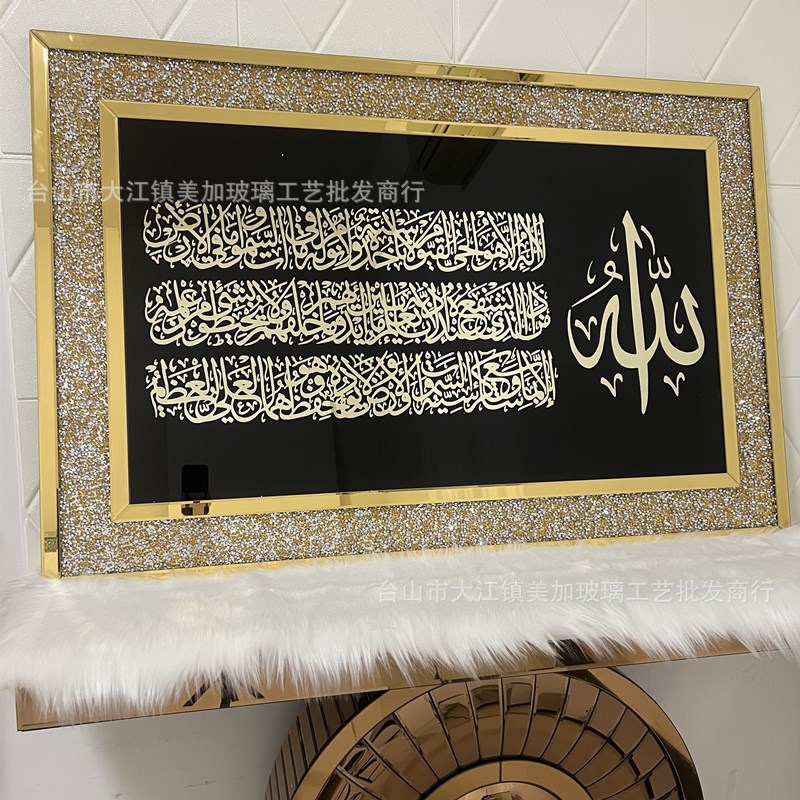 台山市大江镇美加玻璃工艺批发商行
الله
لا إله إلا هو الحي القيوم لا تأخذه سنة ولا نوم له ما في السموات وما في الأرض
من ذا الذي يشفع عنده إلا بإذنه يعلم ما بين أيديهم وما خلفهم ولا يحيطون بشيء من علمه
إلا بما شاء وسع كرسيه السموات والأرض ولا يؤده حفظهما وهو العلي العظيم
台山市大江镇美加玻璃工艺批发商行